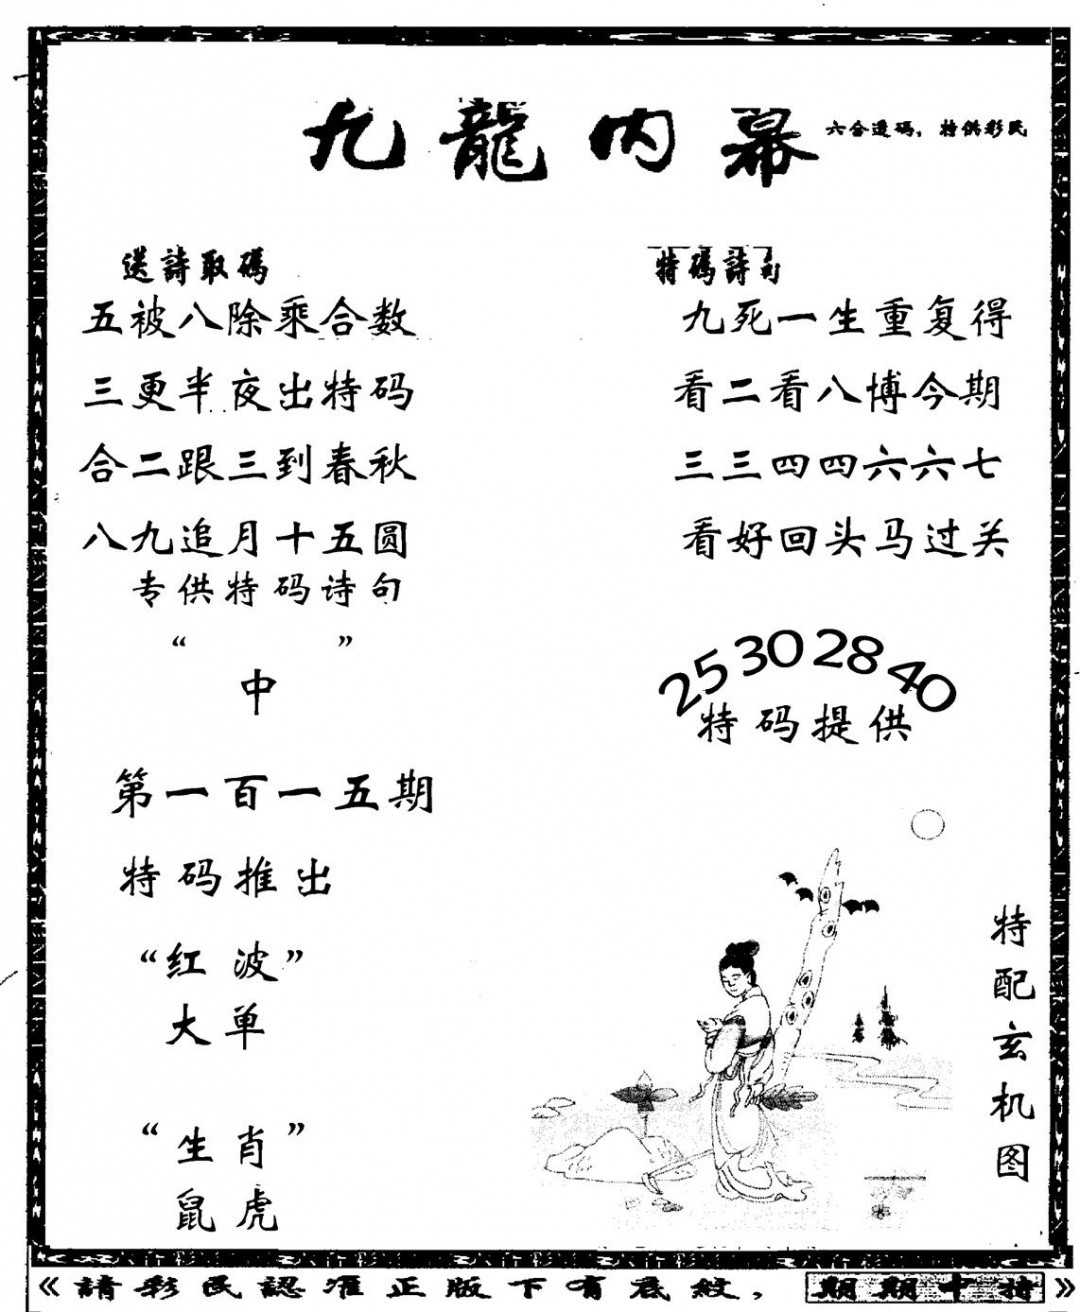 九龍內幕
六合透码，特供彩民
送詩取碼
五被八除乘合数
三更半夜出特码
合二跟三到春秋
八九追月十五圆
专供特码诗句
“ ”
中
第一百一五期
特码推出
“红波”
大单
“生肖”
鼠虎
特碼詩句
九死一生重复得
看二看八博今期
三三四四六六七
看好回头马过关
25 30 28 40
特码提供
特配玄机图
《請彩民認准正版下有底紋，期期中特》